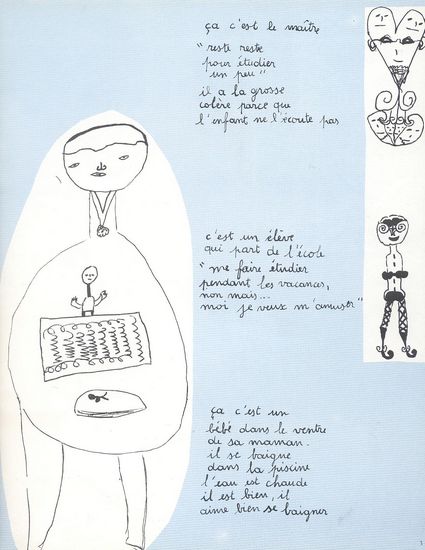 ça c'est le maître
"reste reste
pour étudier
un peu"
il a la grosse
colère parce que
l'enfant ne l'écoute pas
c'est un élève
qui part de l'école
"me faire étudier
pendant les vacances,
non mais...
moi je veux m'amuser"
ça c'est un
bébé dans le ventre
de sa maman.
il se baigne
dans la piscine
l'eau est chaude
il est bien, il
aime bien se baigner